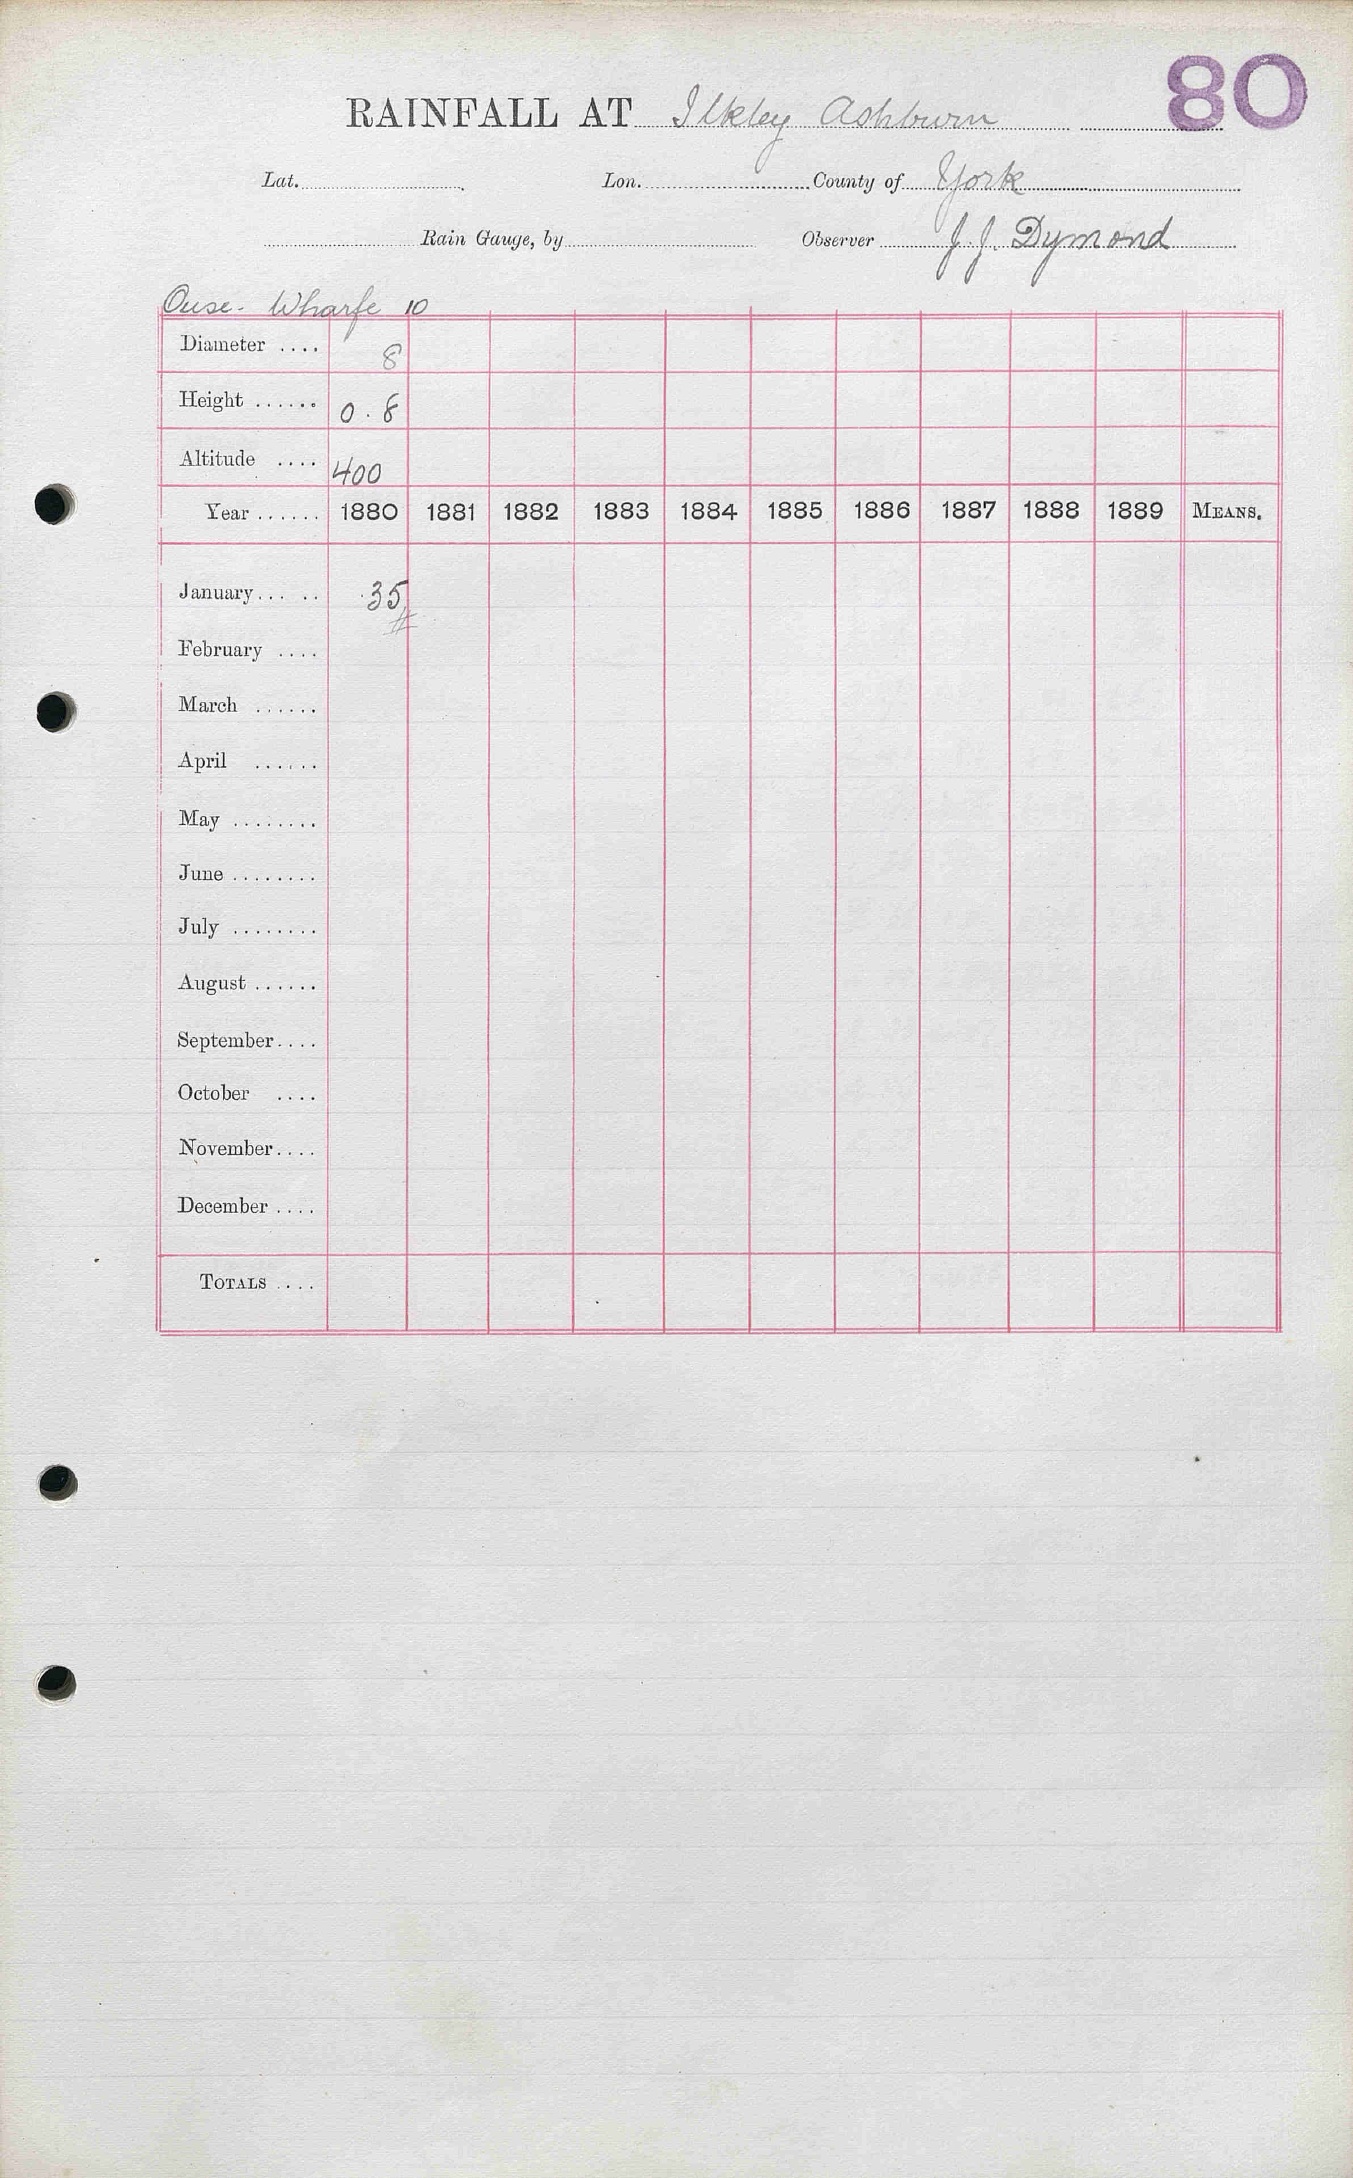 80
RAINFALL AT Ilkley Ashburn
Lat. Lon. County of York
Rain Gauge, by Observer J. J. Dymond
Ouse - Wharfe 10
Diameter .... 8
Height ...... 0.8
Altitude .... 400
Year ...... 1880 1881 1882 1883 1884 1885 1886 1887 1888 1889 MEANS.
January ..... .35
February ....
March ......
April ......
May ........
June ........
July ........
August ......
September ....
October ....
November ....
December ....
TOTALS ....